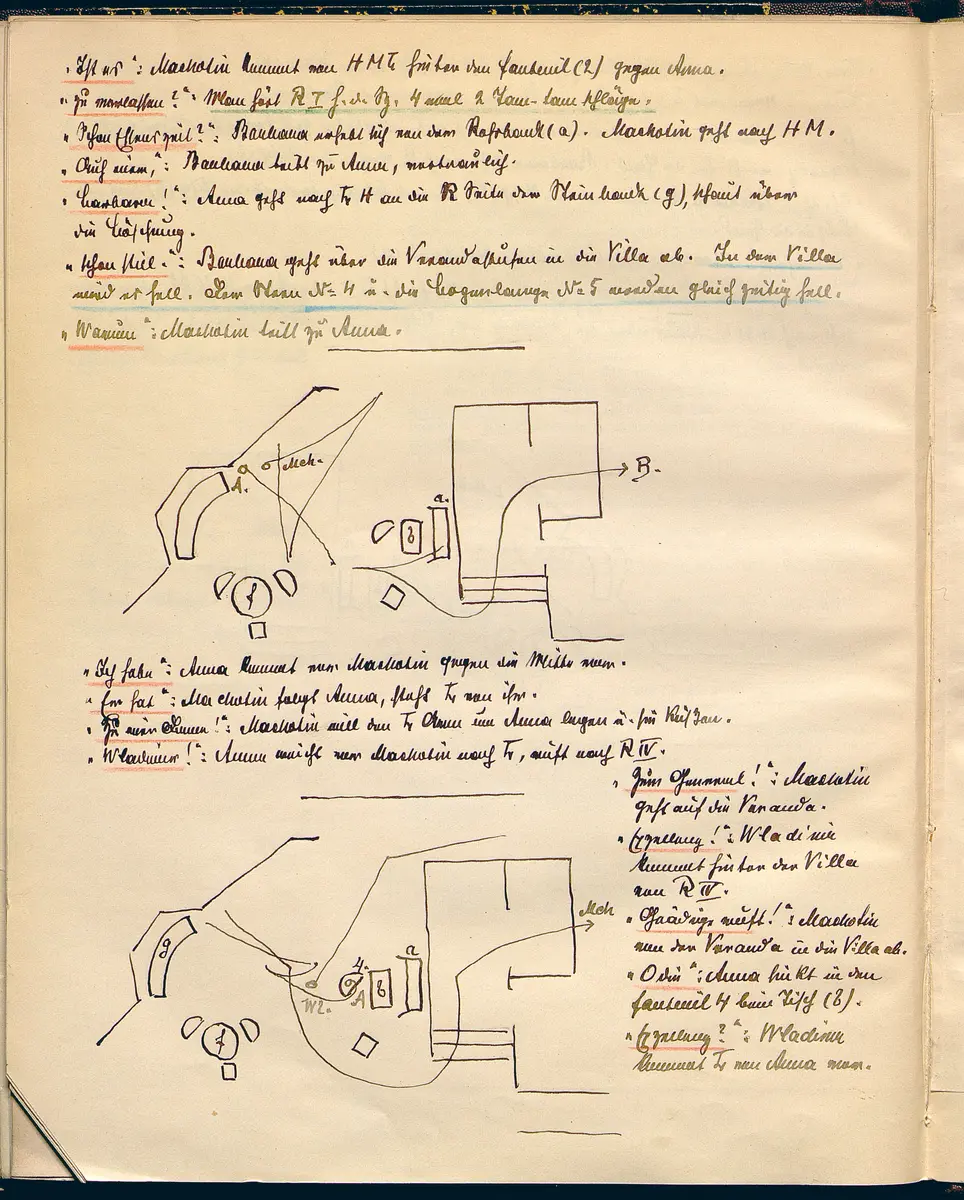 „Ist es“: Machotin kommt von HMTr hinter den Fauteuil (2) gegen Anna.
„zu verlassen?“: Man hört R I h. d. Sz. 4 mal 2 Tam-tam schläge.
„Schon Essenszeit?“: Barbara erhebt sich von der Rohrbank (a). Machotin geht nach HM.
„Auf mein,“: Barbara tritt zu Anna, vertraulich.
„Barbara!“: Anna geht nach Tr H an die R Seite der Steinbank (g), schaut über
die Böschung.
„schon still.“: Barbara geht über die Verandastufen in die Villa ab. In der Villa
wird es hell. Der Stern No 4 u. die Bogenlampe No 5 werden gleichzeitig hell.
„Warum“: Machotin tritt zu Anna.
Mch.
A.
B.
a.
b
f
„Ich habe“: Anna kommt vor Machotin gegen die Mitte vor.
„Er hat“: Machotin folgt Anna, steht Tr von ihr.
„Zu mir!“: Machotin will den Tr Arm um Anna legen u. sie küssen.
„Wladimir!“: Anna weicht vor Machotin nach Tr, ruft nach R IV.
„Zum General!“: Machotin
geht auf die Veranda.
„Exzellenz!“: Wladimir
kommt hinter der Villa
von R IV.
„Gnädige ruft!“: Machotin
von der Veranda in die Villa ab.
„Odin“: Anna sinkt in den
Fauteuil 4 beim Tisch (b).
„Exzellenz?“: Wladimir
kommt Tr von Anna vor.
Mch
g
4.
a
b
A
Wl.
f